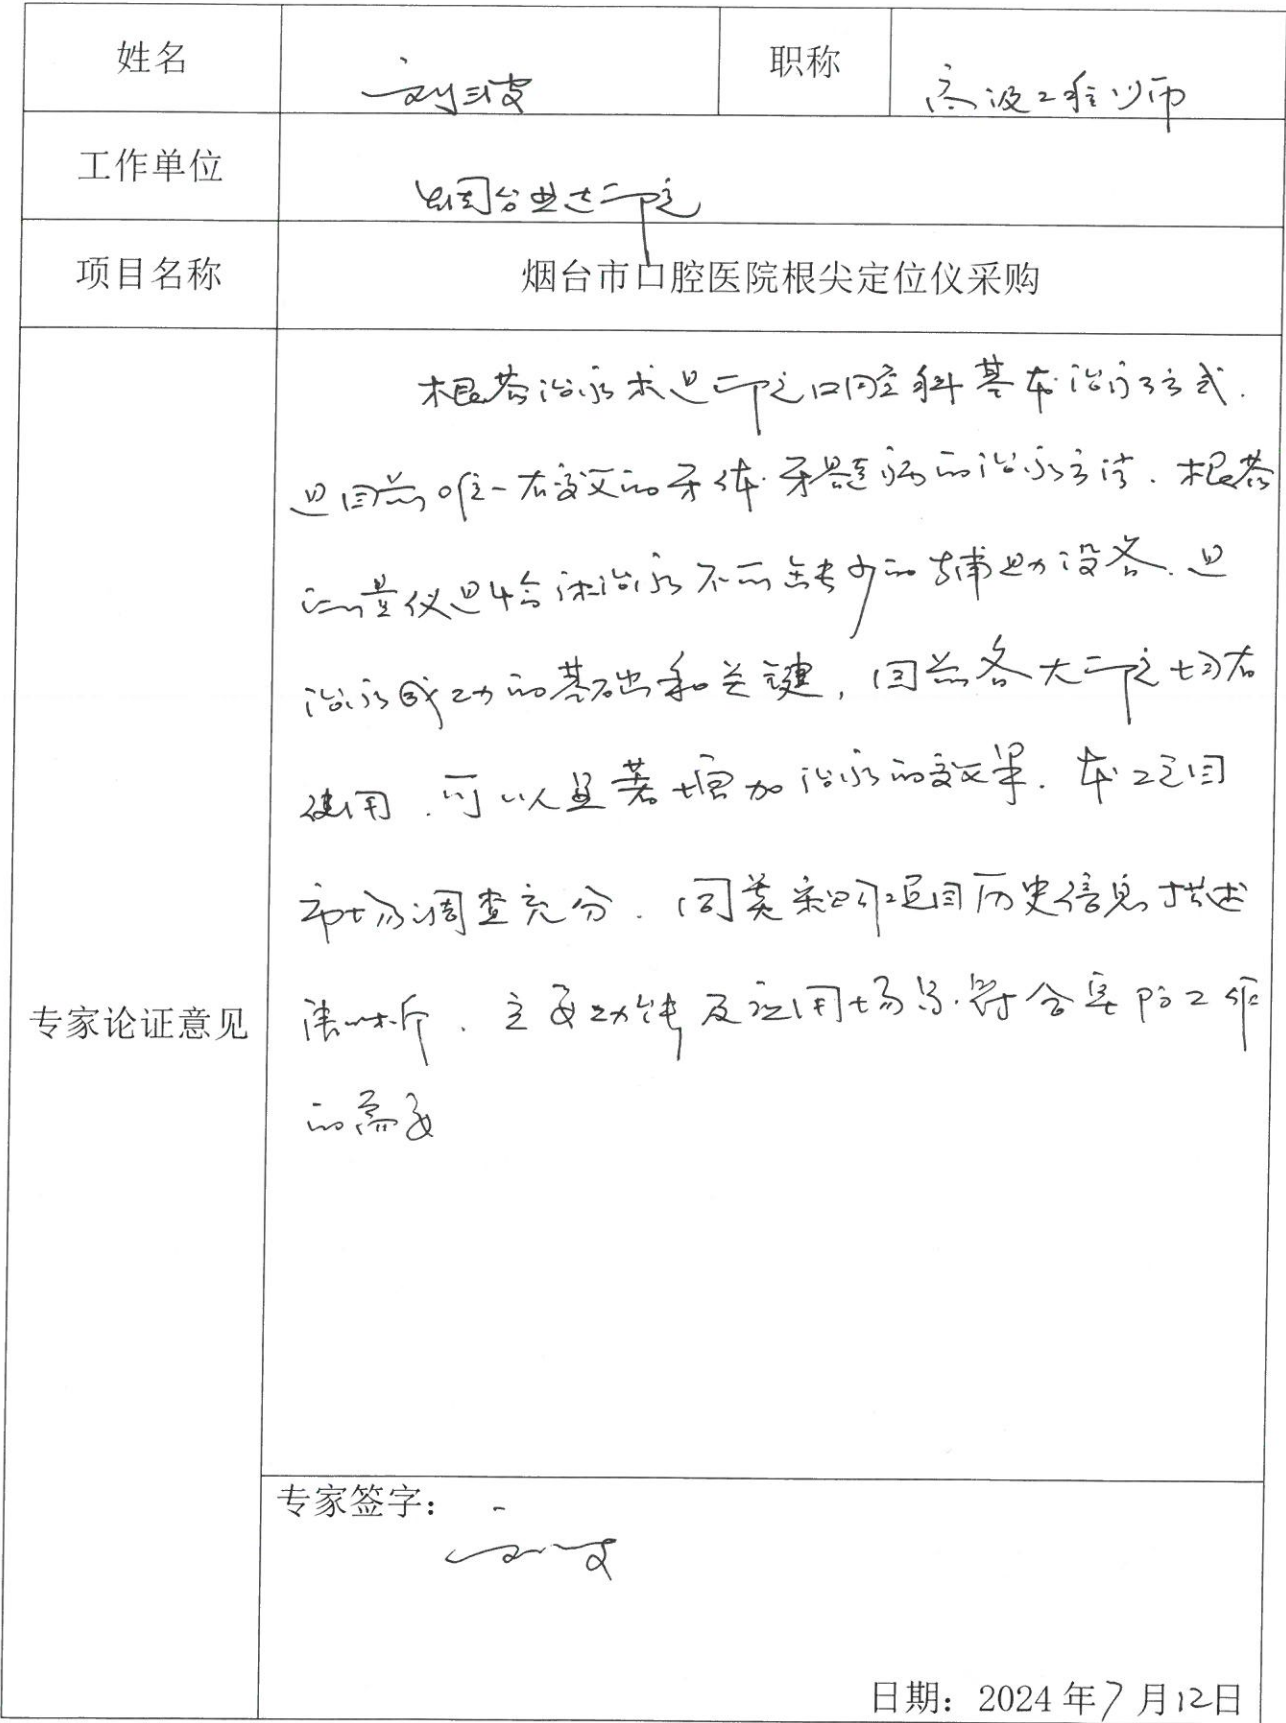 姓名 刘波 职称 高级工程师
工作单位 烟台业达医院
项目名称 烟台市口腔医院根尖定位仪采购
根管治疗术是医院口腔科基本治疗方式.
是目前唯一有效的牙体.牙髓病的治疗方法.根管
测量仪是根管治疗不可缺少的辅助设备.是
治疗成功的基础和关键,目前各大医院均有
使用.可以显著增加治疗的效果.本项目
市场调查充分.同类采购项目历史信息描述
清晰.主要功能及应用场景.符合实际工作
的需要
专家论证意见
专家签字:
日期:2024年7月12日